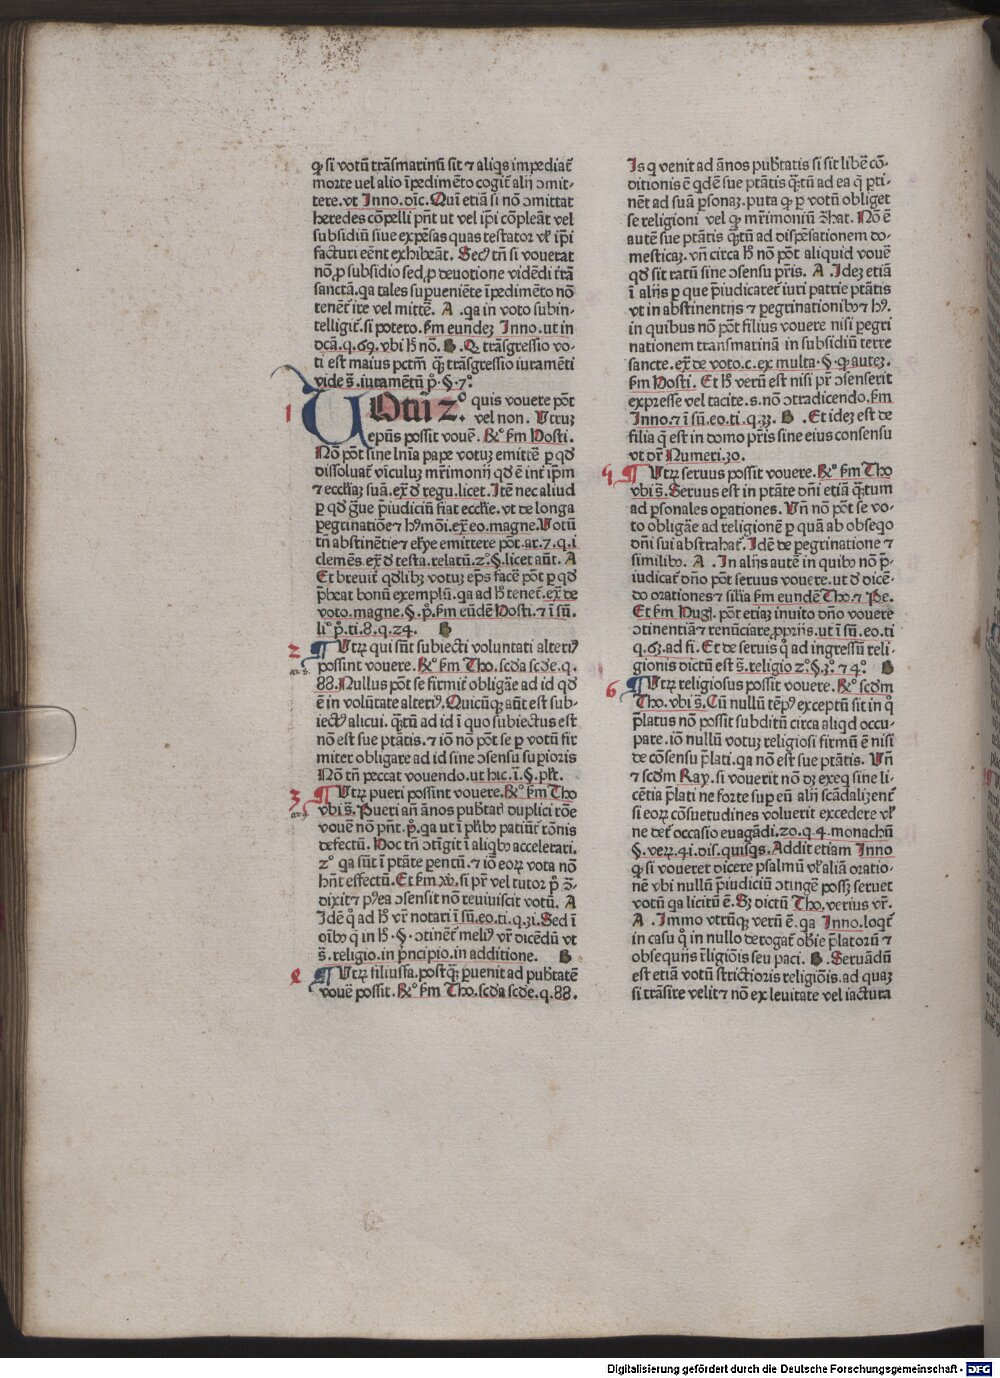 ꝙ si votū trāsmarinū sit ⁊ aliq̄s impediat᷑
morte uel alio īpedimēto cogit᷑ alij ↄmit-
tere. vt Inno. dic̄. Qui etiā si nō ↄmittat
heredes cōpelli pn̄t ut vel ip̄i cōpleāt vel
subsidiū siue expēsas quas testator vl̓ ip̄i
facturi eēnt exhibeāt. Secꝰ tn̄ si vouerat
nō ꝓ subsidio sed ꝓ deuotione vidēdi t̄rā
sanctā. qa tales suꝑueniēte īpedimēto nō
tenēt᷑ ire vel mittē. A .qa in voto subin-
telligit᷑. si potero. ẜm eundeꝫ Inno. ut in
dc̄a. q. 69. vbi hͦ nō. B .Qꝫ trāsgressio vo-
ti est maius pctm̄ qꝫ̄ trāsgressio iuramēti
vide s̄. iuramētū pͦ. §. 7ͦ.
1 VOtū 2ͦ. quis vouere pōt
vel non. Utruꝫ
epūs possit vouē. ℞ͦ ẜm Hosti.
Nō pōt sine lnīa pape votuꝫ emittē ꝑ qd̓
dissoluat᷑ vīculuꝫ mr̄imonij qd̓ ē int̓ ip̄m
⁊ eccl̓iaꝫ suā. ex̄ d̓ regu. licet. Itē nec aliud
ꝑ qd̓ ḡue p̄iudiciū fiat eccl̓ie. vt de longa
ꝑegrinatiōe ⁊ hꝰmōi. ex̄ eo. magne. Votū
tn̄ abstinētie ⁊ el̓ꝰye emittere pōt. ar. 7. q. i
clemēs. ex̄ d̓ testa. relatū. 2ͦ. §. licet aūt. A
Et breuit᷑ qd̓libꝫ votuꝫ ep̄s facē pōt ꝑ qd̓
p̄beat bonū exemplū. qa ad hͦ tenet᷑. ex̄ de
voto. magne. §. pͦ. ẜm eūdē Hosti. ⁊ ī sū.
li̊ pͦ. ti. 8. q. 24. B
2 ¶ Utꝝ qui sūt subiecti voluntati alteriꝰ
possint vouere. ℞ͦ ẜm Tho. scd̓a scd̓e. q.
88. Nullus pōt se firmit᷑ obligāe ad id qd̓
ē in volūtate alteriꝰ. Quicūqꝫ aūt est sub-
iectꝰ alicui. qꝫ̄tū ad id ī quo subiectus est
nō est sue ptātis. ⁊ iō nō pōt se ꝑ votū fir
miter obligare ad id sine ↄsensu suꝑioris
Nō tn̄ peccat vouendo. ut hic. ī. §. pn̄t.
3 ¶ Utꝝ pueri possint vouere. ℞ͦ ẜm Tho
vbi s̄. Pueri an̄ ānos pub̓tatꝭ duplici rōe
vouē nō pn̄t. pͦ. qa ut ī pl̓ibꝰ patiunt᷑ rōnis
defectū. Hoc tn̄ ↄtīgit ī aliqbꝰ accelerari.
2ͦ qa sūt ī ptāte ꝑentū. ⁊ iō eoꝝ vota nō
hn̄t effectū. Et ẜm xꝰ. si pr̄ vel tutor pͦ ↄ̄-
dixit ⁊ pꝰea ↄsensit nō reuiuiscit votū. A
Idē qͦ ad hͦ vr̄ notari ī sū. eo. ti. q. 31. Sed ī
oībꝰ q̄ in hͦ. §. ↄtinēt᷑ meliꝰ vr̄ dicēdū vt
s̄. religio. in p̄ncipio. in additione. B
¶ Utꝝ filiussa. postqꝫ̄ ꝑuenit ad pub̓tatē
vouē possit. ℞ͦ ẜm Tho. scd̓a scd̓e. q. 88.
Is q̄ venit ad ānos pub̓tatis si sit lib̓e cō-
ditionis ē qd̓ē sue ptātis qꝫ̄tū ad ea q̄ ꝑti-
nēt ad suā ꝑsonaꝫ. puta ꝙ ꝑ votū obliget
se religioni vel ꝙ mr̄imoniū ↄ̓hat. Nō ē
autē sue ptātis qꝫ̄tū ad dispēsationem do-
mesticaꝫ. vn̄ circa hͦ nō pōt aliquid vouē
qd̓ sit ratū sine ↄsensu pr̄is. A .Ideꝫ etiā
ī alijs ꝑ que p̄iudicaret᷑ iuri patrie ptātis
vt in abstinentijs ⁊ ꝑegrinationibꝰ ⁊ hꝰ.
in quibus nō pōt filius vouere nisi ꝑegri
nationem transmarinā in subsidiū terre
sancte. ex̄ de voto. c. ex multa. §. ꝙ auteꝫ.
ẜm Hosti. Et hͦ verū est nisi pr̄ ↄsenserit
expresse vel tacite. s. nō ↄtradicendo. ẜm
Inno. ⁊ ī sū. eo. ti. q. 33. B .Et ideꝫ est de
filia q̄ est in domo pr̄is sine eius consensu
vt dr̄ Numeri. 30.
¶ Utꝝ seruus possit vouere. ℞ͦ ẜm Tho
vbi s̄. Seruus est in ptāte dn̄i etiā qꝫ̄tum
ad ꝑsonales oꝑationes. Vn̄ nō pōt se vo-
to obligāe ad religionē ꝑ quā ab obseqͦ
dn̄i sui abstrahat᷑. Idē de ꝑegrinatione ⁊
similibꝰ. A .In alijs autē in quibꝰ nō p̄-
iudicat᷑ dn̄o pōt seruus vouere. ut d̓ dicē-
do orationes ⁊ sil̓ia ẜm eundē Tho. ⁊ Pe.
Et ẜm Hugͥ. pōt etiaꝫ inuito dn̄o vouere
ↄtinentiā ⁊ renūciare ꝓprijs. ut ī sū. eo. ti
q. 63. ad fi. Et de seruis qͦ ad ingressū reli-
gionis dictū est s̄. religio 2ͦ. §. 3ͦ. ⁊ 4ͦ. B
6 ¶ Utꝝ religiosus possit vouere. ℞ͦ scd̓m
Tho. vbi s̄. Cū nullū tēpꝰ exceptū sit in qͦ
p̄latus nō possit subditū circa aliqd̓ occu-
pare. iō nullū votuꝫ religiosi firmū ē nisi
de cōsensu p̄lati. qa nō est sue ptātis. Vn̄
⁊ scd̓m Ray. si vouerit nō dꝫ exeq̄ sine li-
cētia p̄lati ne forte suꝑ eū alij scādalizent᷑
si eoꝝ cōsuetudines voluerit excedere vl̓
ne det᷑ occasio euagādi. 20. q. 4. monachū
§. veꝝ. 41. dis. quisqs. Addit etiam Inno
ꝙ si voueret dicere psalmū vl̓ aliā oratio-
nē vbi nullū p̄iudiciū ↄtingē possꝫ seruet
votū qa licitū ē. Sꝫ dictū Tho. verius vr̄.
A .Immo vtrūqꝫ verū ē. qa Inno. loqt᷑
in casu qͦ in nullo derogat᷑ ob̓ie p̄latorū ⁊
obsequijs r̄ligiōis seu paci. B .Seruādū
est etiā votū strictioris religiōis. ad quaꝫ
si trāsire velit ⁊ nō ex leuitate vel iactura
Digitalisierung gefördert durch die Deutsche Forschungsgemeinschaft - DFG